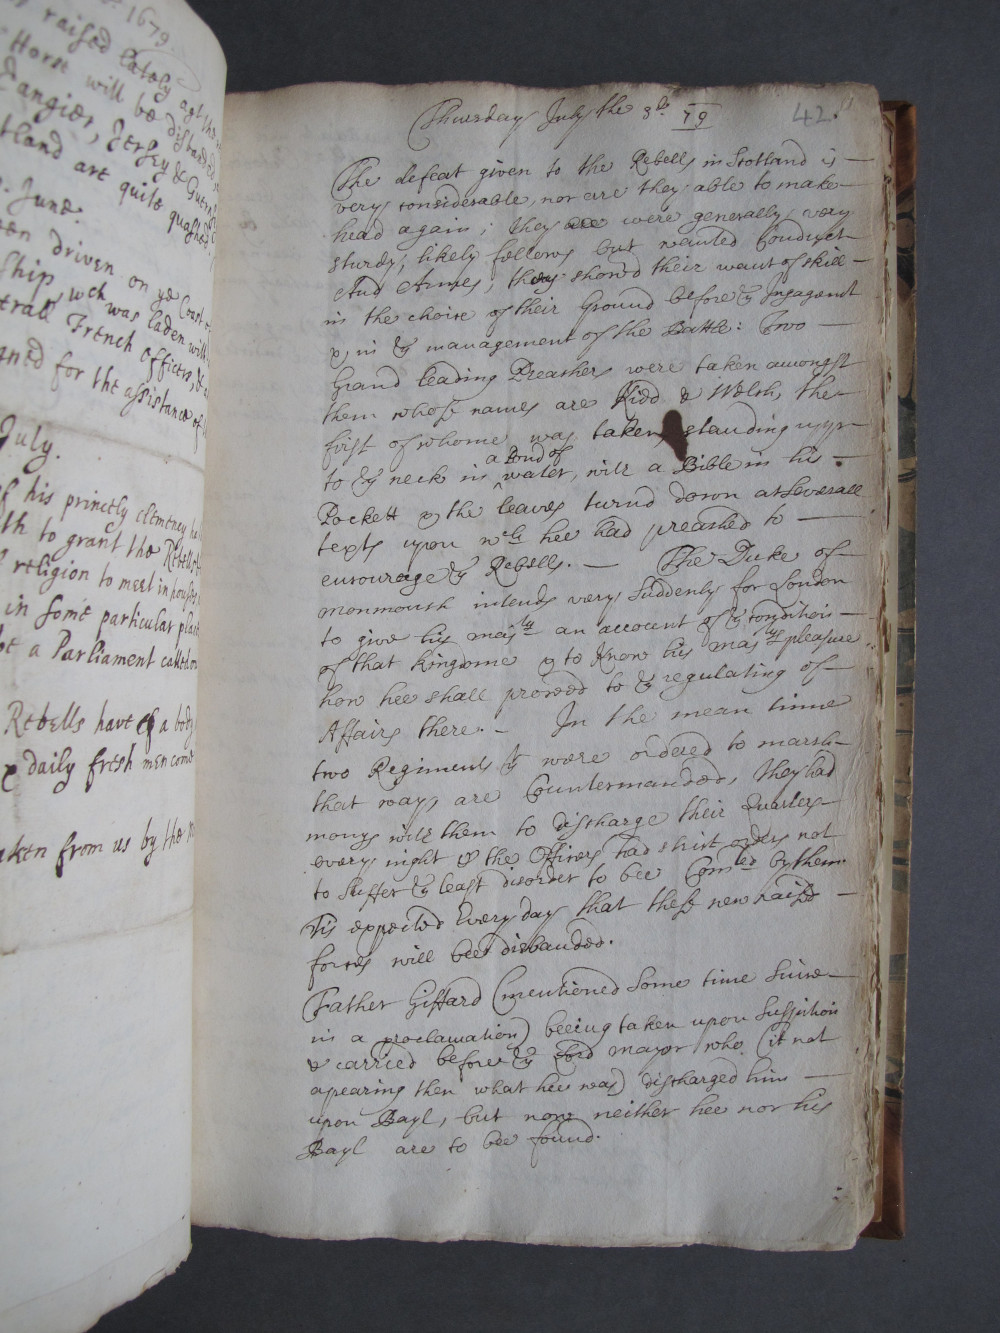 1679.
raised lately agt the
Horse will be disbanded
Tangier, Jersey & Guern
tland are quite quashed
June.
een driven on ye Coast of
Ship, wch was laden with
French Officers, &
for the assistance of
July.
of his princely clemency ha
th to grant the Rebells
religion to meet in houses
in some particular place
a Parliament called
Rebells have a body
& daily fresh men come
aken from us by the
Thursday July the 3d. 79
42.
The defeat given to the Rebells in Scotland is
very considerable, nor are they able to make
head again; they were generally very
sturdy, likely fellows but wanted Conduct
And Armes; they shewd their want of skill
in the choice of their Ground before ye Ingagemt
& in ye management of the Battle: Two
Grand leading Preachers were taken amongst
them whose names are Kidd & Welsh, the
first of whome was taken standing upp
to ye neck in a Pond of water, with a Bible in his
Pockett & the leaves turnd down at Severall
texts upon wch hee had preached to
encourage ye Rebells. — The Duke of
Monmouth intends very Suddenly for London
to give his Majty an account of ye condition
of that kingdome & to know his Majtys pleasure
how hee shall proceed to ye regulating of
Affairs there. — In the mean time
two Regiments yt were ordered to march
that way, are Countermanded, they had
mony with them to discharge their Quarters
every night & the Officers had strict orders not
to Suffer ye least disorder to bee Comited by them.
Tis expected Every day that these new raised
forces will bee disbanded.
Father Giffard (mentioned Some time Since
in a proclamation) beeing taken upon Suspition
& carried before ye Lord Mayor who (it not
apearing then what hee was) discharged him
upon Bayl, but now neither hee nor his
Bayl are to bee found.